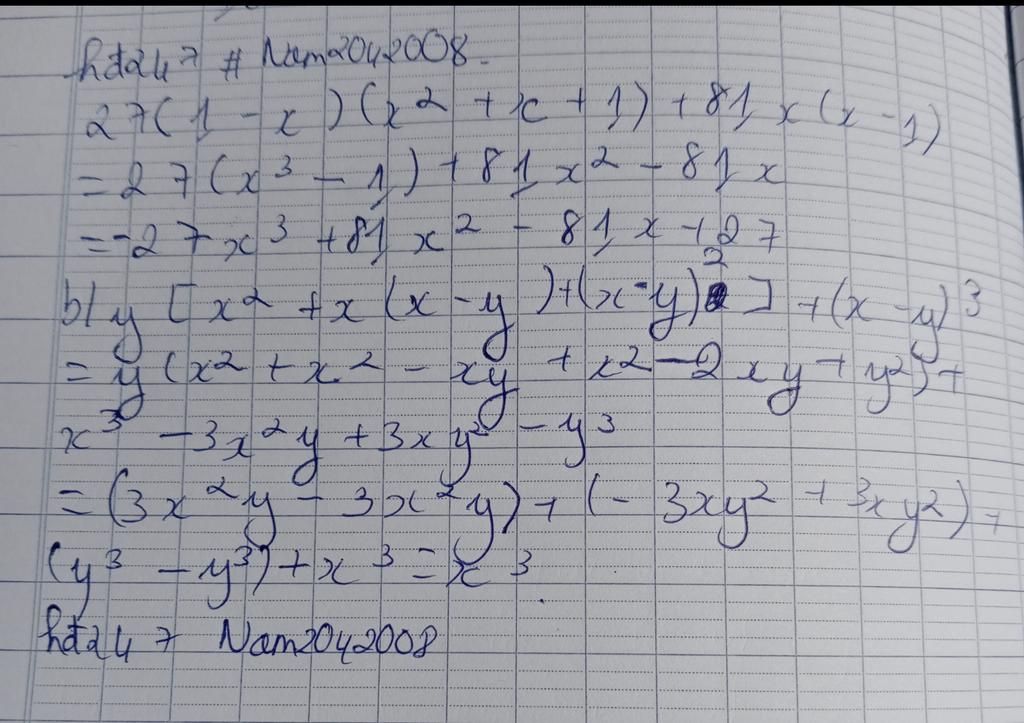 hđ247 # Nam2042008.
27(1 - x)(x² + x + 1) + 81x(x - 1)
= 27(x³ - 1) + 81x² - 81x
= -27x³ + 81x² - 81x + 27
b/ y [x² + x(x - y) + (x - y)²] + (x - y)³
= y(x² + x² - xy + x² - 2xy + y²) +
x³ - 3x²y + 3xy² - y³
= (3x²y - 3x²y) + (- 3xy² + 3xy²) +
(y³ - y³) + x³ = x³.
hđ247 Nam2042008